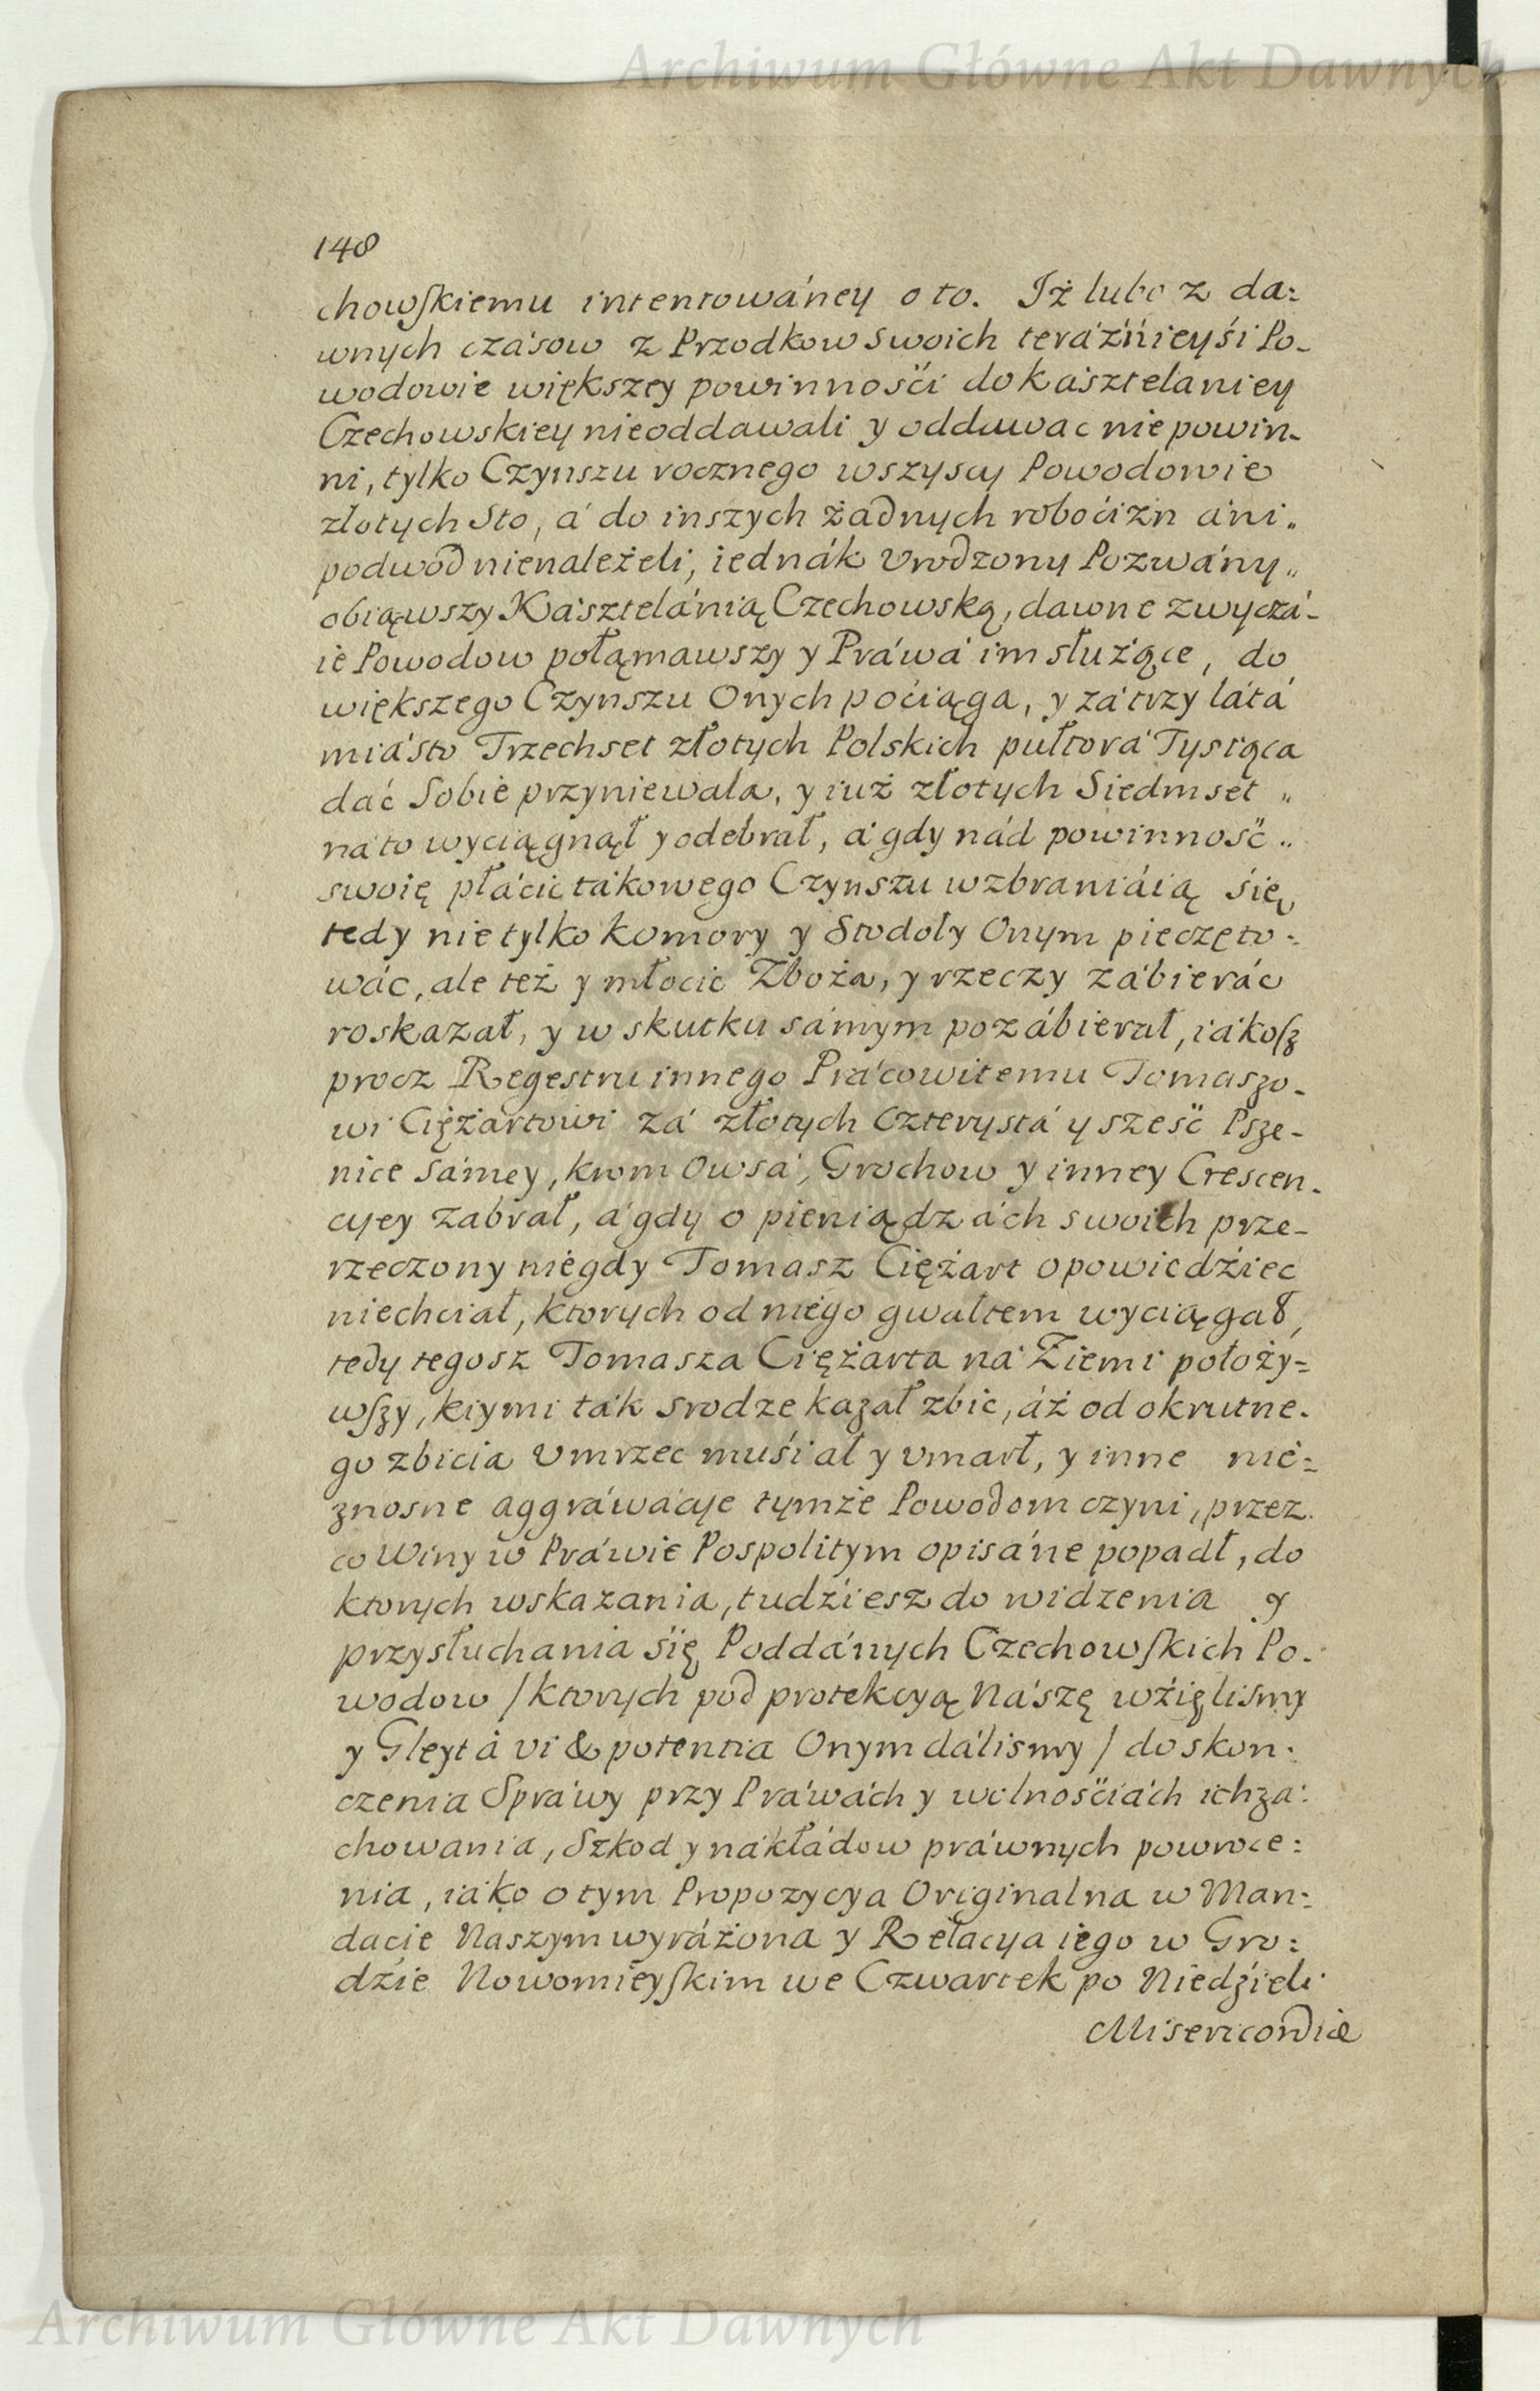 Archiwum Główne Akt Dawnych
148
chowſkiemu intentowáney o to. Iż lubo z da:
wnych czásow z Przodkow swoich teráźńieyśi Po-
wodowie większey powinnośći do kásztelaniey
Czechowskiey nieoddawali y oddawac niepowin-
ni, tylko Czynszu rocznego wszyscy Powodowie
złotych Sto, á do inszych żadnych robоćizn áni„
podwod nienależeli, iednák Vrodzony Pozwány„
obiąwszy Kásztelánią Czechowską, dawne zwyczá-
ie Powodow połąmawszy y Práwá im służące, do
większego Czynszu Onych poćiąga, y zá trzy látá
miásto Trzechset złotych Polskich pułtorá Tysiąca
dać Sobie przyniewala, y iuż złotych Siedmset „
ná to wyciągnął y odebrał, á gdy nád powinność„
swoię płácic tákowego Czynszu wzbraniáią śię,
tedy nie tylko komory y Stodoły Onym pieczęto-
wác, ale też y młocic Zboża, y rzeczy zábierác
roskazał, y w skutku sámym pozábierał, iákoſz
procz Regestru innego Prácowitemu Tomaszo-
wi Ciężartowi zá złotych czterystá y sześć Psze-
nice sámey, krom Owsá, Grochow y inney Crescen-
cyey zabrał, á gdy o pieniądzách swoich prze-
rzeczony niegdy Tomasz Ciężart opowiedźiec
niechciał, ktorych od niego gwałtem wyciągał,
tedy tegosz Tomasza Ciężarta ná Ziemi położy=
wſzy, kiymi ták srodze kazał zbic, áż od okrutne-
go zbicia Vmrzec muśiał y vmarł, y inne nie=
znosne aggráwácye tymże Powodom czyni, przez
co Winy w Práwie Pospolitym opisáne popadł, do
ktorych wskazania, tudźiesz do widzenia y
przysłuchania śię Poddánych Czechowſkich Po-
wodow / ktorych pod protekcyą Nászę wźięlismy
y Gleyt à vi & potentia Onym dálismy / do skon:
czenia Spráwy przy Práwách y wolnośćiách ich za:
chowania, Szkod y nákłádow práwnych powroce:
nia, iáko o tym Propozycya Originalna w Man:
dacie Naszym wyráżona y Relacya iego w Gro:
dźie Nowomieyſkim we Czwartek po Niedźieli
Misericordiæ
Archiwum Główne Akt Dawnych